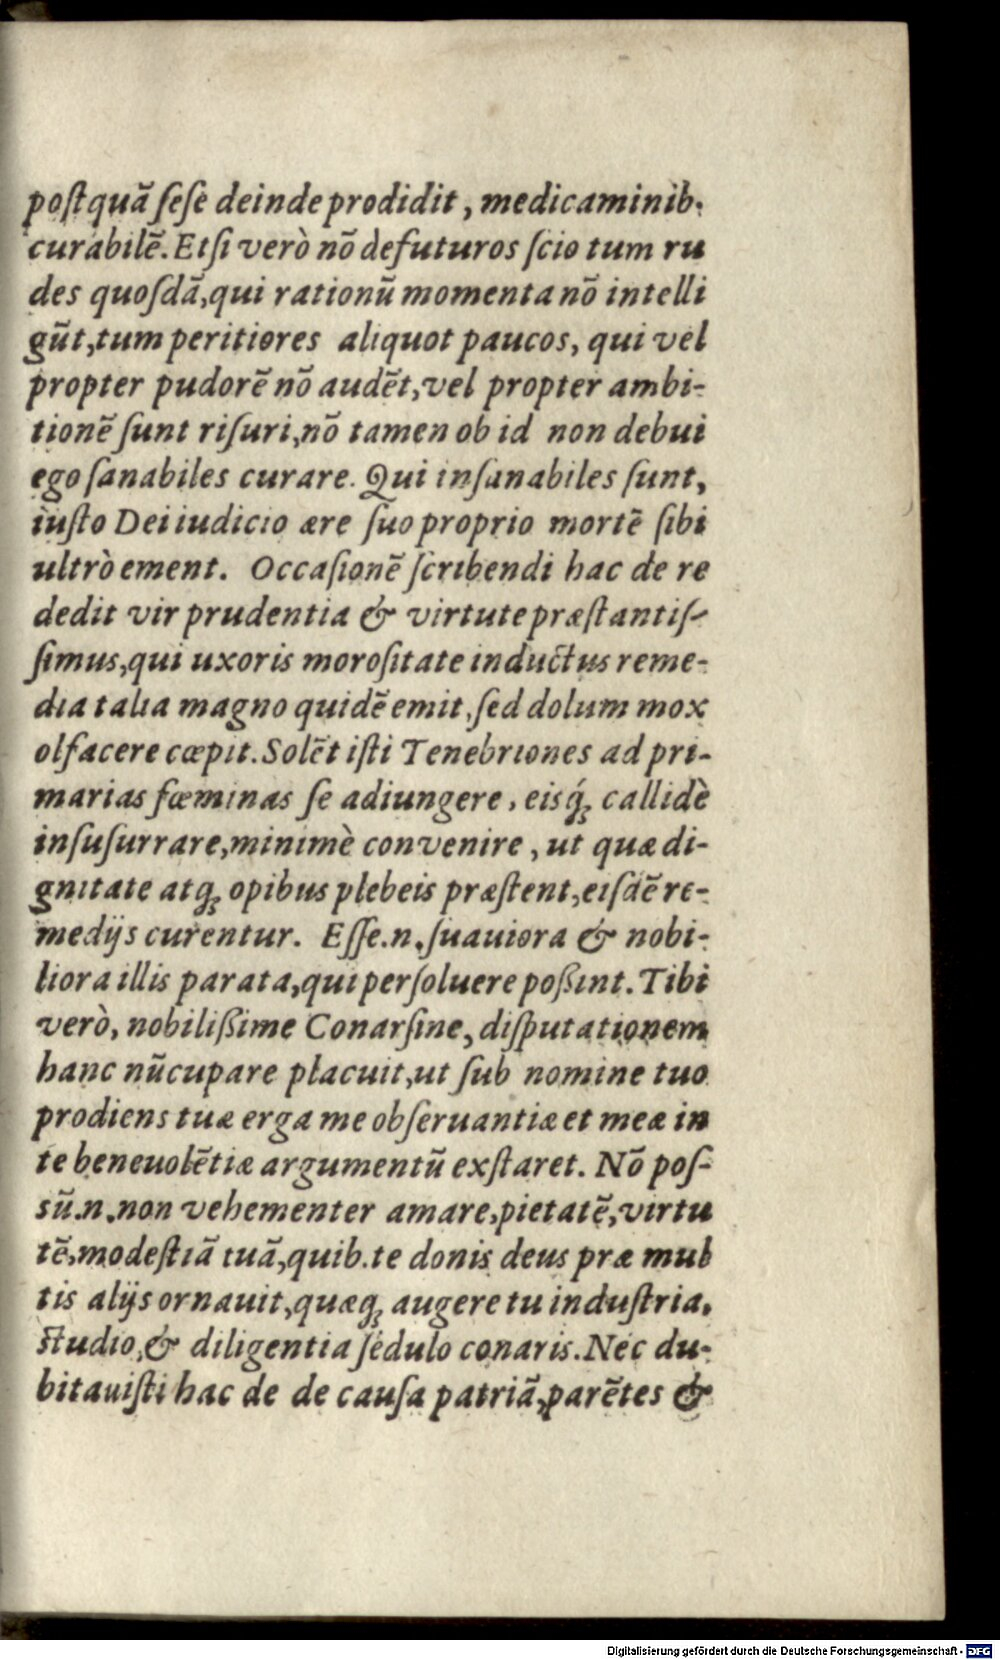 postquã ſeſe deinde prodidit, medicaminib.
curabilẽ. Etſi verò nõ defuturos ſcio tum ru
des quoſdã, qui rationũ momenta nõ intelli
gũt, tum peritiores aliquot paucos, qui vel
propter pudorẽ nõ audẽt, vel propter ambi-
tionẽ ſunt riſuri, nõ tamen ob id non debui
ego ſanabiles curare. Qui inſanabiles ſunt,
iuſto Dei iudicio ære ſuo proprio mortẽ ſibi
ultrò ement. Occaſionẽ ſcribendi hac de re
dedit vir prudentia & virtute præſtantiſ-
ſimus, qui uxoris moroſitate inductus reme-
dia talia magno quidẽ emit, ſed dolum mox
olfacere cœpit. Solẽt iſti Tenebriones ad pri-
marias fœminas ſe adiungere, eisq́ꝫ callidè
inſuſurrare, minimè convenire, ut quæ di-
gnitate atqꝫ opibus plebeis præſtent, eiſdẽ re-
medijs curentur. Eſſe.n. ſuauiora & nobi-
liora illis parata, qui perſoluere poßint. Tibi
verò, nobilißime Conarſine, diſputationem
hanc nũcupare placuit, ut ſub nomine tuo
prodiens tuæ erga me obſeruantiæ et meæ in
te beneuolẽtiæ argumentũ exſtaret. Nõ poſ-
sũ.n. non vehementer amare, pietatẽ, virtu
tẽ, modeſtiã tuã, quib. te donis deus præ mul
tis alijs ornauit, quæqꝫ augere tu induſtria,
ſtudio, & diligentia ſedulo conaris. Nec du-
bitauiſti hac de de cauſa patriã, parẽtes &
Digitalisierung gefördert durch die Deutsche Forschungsgemeinschaft - DFG